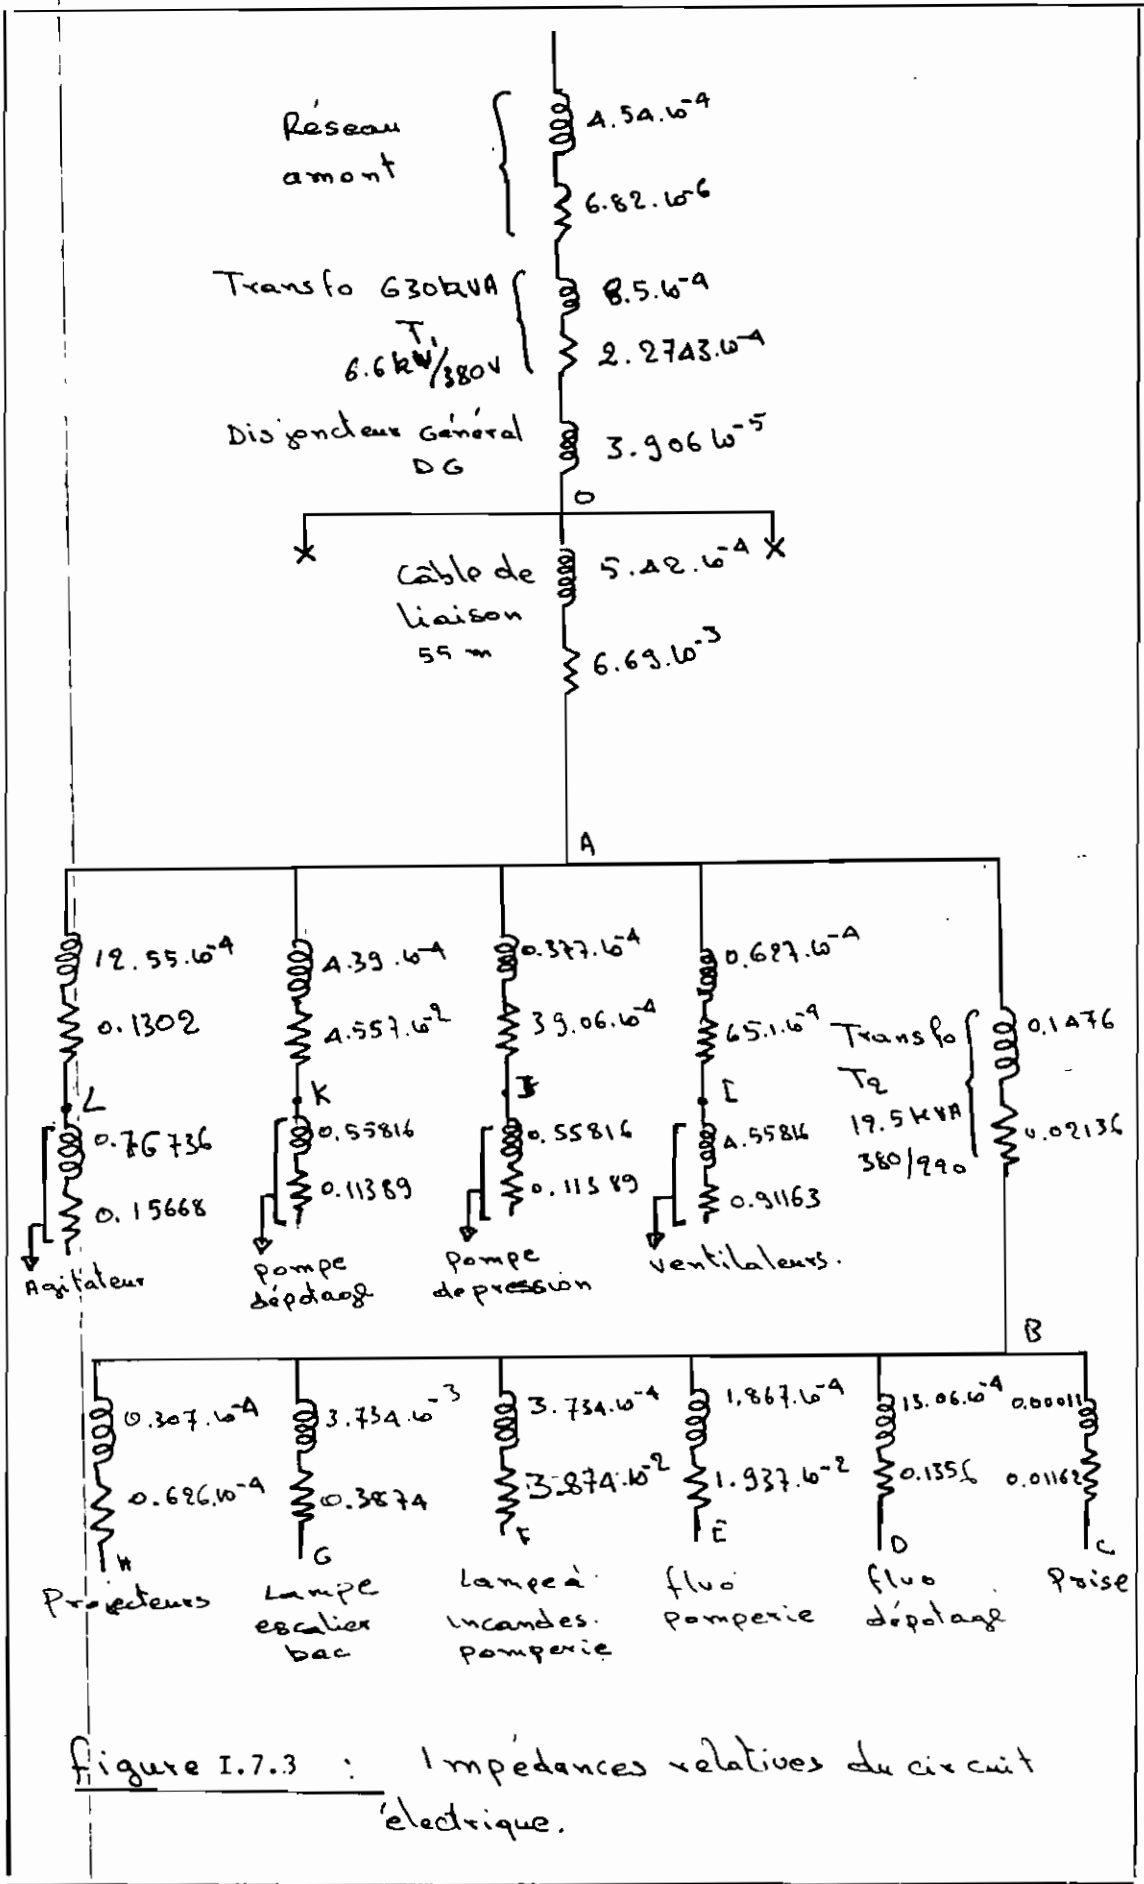 Réseau
amont
4.54.10⁻⁴
6.82.10⁻⁶
Transfo 630kVA
T₁
6.6kV/380V
8.5.10⁻⁴
2.2743.10⁻⁴
Disjoncteur Général
DG
3.906 10⁻⁵
O
Câble de
liaison
55 m
5.42.10⁻⁴
6.69.10⁻³
A
12.55.10⁻⁴
0.1302
L
0.76736
0.15668
Agitateur
4.39.10⁻⁴
4.557.10⁻²
K
0.55816
0.11389
Pompe
dépotage
0.377.10⁻⁴
39.06.10⁻⁴
J
0.55816
0.11389
Pompe
depression
0.627.10⁻⁴
65.1.10⁻⁴
I
4.55816
0.91163
ventilateurs.
Transfo
T₂
19.5 kVA
380/220
0.1476
0.02136
B
0.307.10⁻⁴
0.626.10⁻⁴
H
Projecteurs
3.734.10⁻³
0.3874
G
Lampe
escalier
bac
3.734.10⁻⁴
3.874.10⁻²
F
Lampe à
incandes.
pomperie
1.867.10⁻⁴
1.937.10⁻²
E
fluo
pomperie
13.06.10⁻⁴
0.1356
D
fluo
dépotage
0.00011
0.01162
C
Prise
figure I.7.3 : Impédances relatives du circuit
électrique.